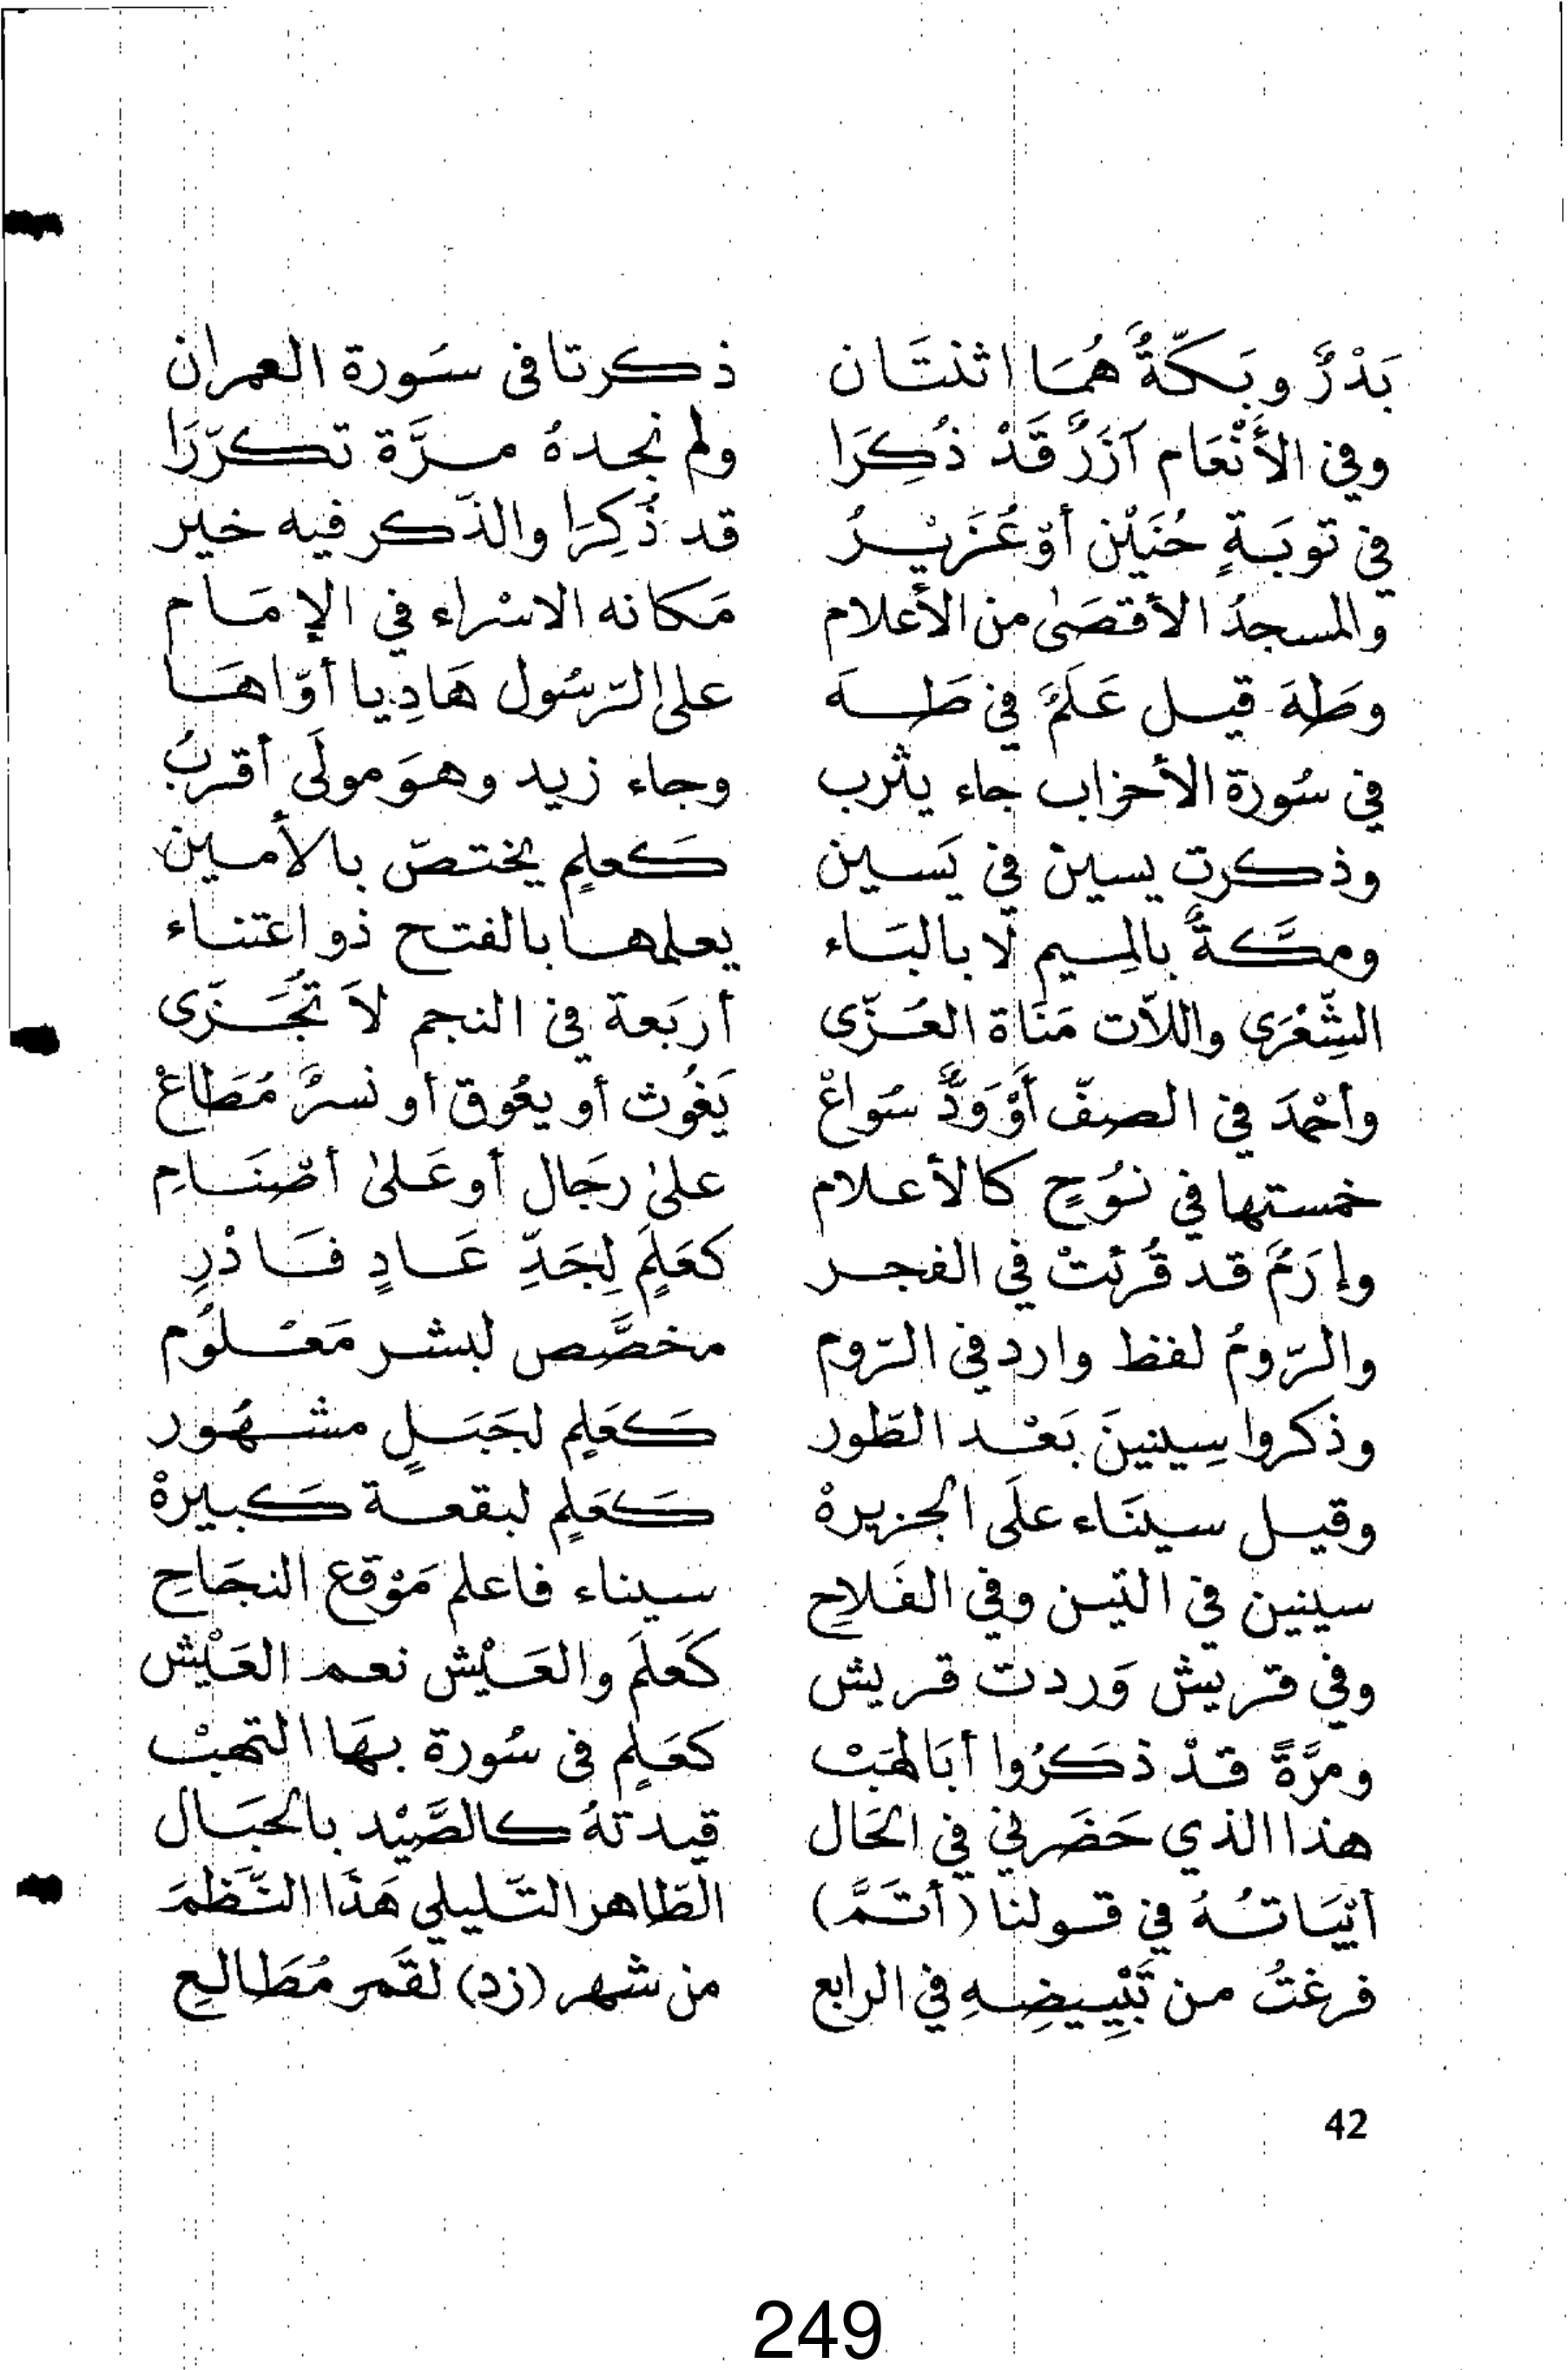 بَدْرٌ وبَكّةٌ هُمَا اثنتَان ذكرتا فى سُورة العمران
وفي الأَنْعَام آزَرٌ قَدْ ذُكِرَا ولم نجدهُ مرَّة تكرّرَا
في توبَةٍ حُنَيْن أوْ عُزَيْرُ قد ذُكِرَا والذّكر فيه خير
والمسجدُ الأقصَى من الأعلام مَكانه الاسْراء في الإمَام
وطَهَ قيل عَلَمٌ في طَهَ على الرّسُول هَادِيا أوّاهَا
في سُورة الأحزاب جاء يثرب وجاء زيد وهوَ مولَى أقربُ
وذكرت يسين في يَسين كَعلمٍ يختصّ بالأمين
ومكَّةٌ بالمِيم لا بالبَاء يعلمها بالفتح ذو اعتناء
الشِّعْرَى واللاّت مَنَاة العُزّى أربَعة في النجم لاَ تُجَزّى
وأحْمدَ في الصفّ أوْ وَدٌّ سُواعْ يَغُوث أو يعُوق أو نسرٌ مُطَاعْ
خمستها في نُوحٍ كالأعلام على رجَال أو عَلىٰ أصْنَامِ
وإرَمٌ قد قُرئتْ في الفجر كعَلَمٍ لِجَدِّ عَادٍ فَادْرِ
والرّومُ لفظ وارد في الرّوم مخصَّص لبشر مَعْلُوم
وذكروا سِينينَ بَعْد الطّور كَعَلمٍ لجَبَلٍ مشهُور
وقيل سينَاء علَى الجزيرهْ كَعَلمٍ لبقعة كَبيرهْ
سينين في التين وفي الفَلاحِ سيناء فاعلم مَوْقع النجَاحِ
وفي قريش وَردت قريش كَعلَم والعَيْش نعم العَيْش
ومرَّةً قدْ ذكَرُوا أبَا لهَبْ كعَلمٍ فى سُورة بهَا التهبْ
هذا الذي حَضَرني في الحَال قيدتهُ كالصَّيْد بالحبَال
أبْيَاتُهُ في قولنا (أتَمَّ) الطّاهر التّليلي هَذَا النَّظمَ
فرغتُ من تَبْيِيضِهِ في الرابع من شهر (زد) لقَمر مُطَالعِ
42
249